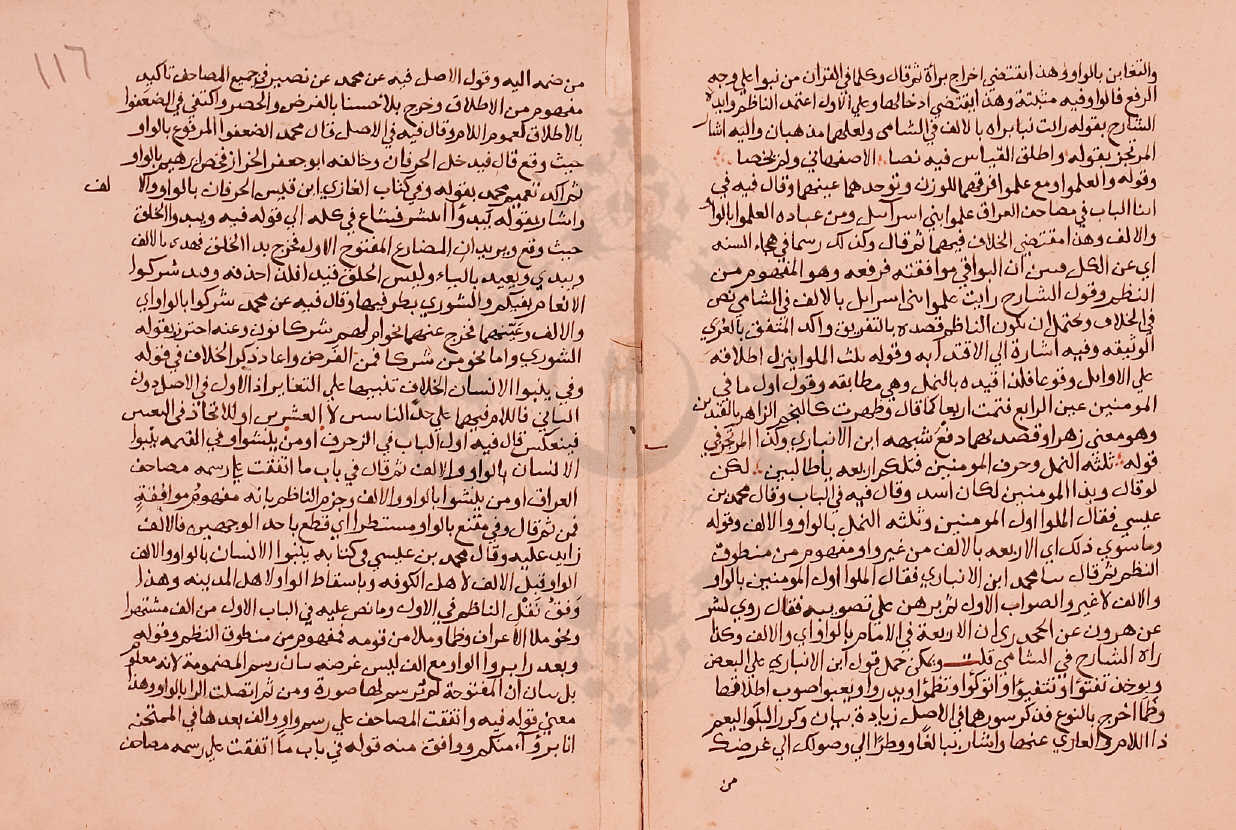 والتغابن بالواو وهذا يقتضي اخراج براة ثم قال وكلما في القران من نبوا علي وجه
الرفع فالواو فيه مثبتة وهذا يقتضي ادخالها وعلي الاول اعتمد الناظم وايده
الشارح بقوله رايت نبا براه بالالف في الشامي ولعلهما مذهبان واليه اشار
المرتجز بقوله واطلق القياس فيه نصا الاصفهاني ولم يخصا
وقوله والعلموا ومع علموا فرقهما للوزن وتوحدهما عينهما وقال فيه في
اثنا الباب في مصاحف العراق علموا بني اسرايل ومن عباده العلموا بالواو
والالف وهذا مقتضي الخلاف فيهما ثم قال وكذلك رسما في هجاء السنه
اي عن الكل فبين ان البواقي موافقته فرفعه وهو المفهوم من
النظم وقول الشارح رايت علموا بني اسرايل بالالف في الشامي نص
في الخلاف ويحتمل ان يكون الناظم قصده بالتفريق واكد المتفق بالعري
الوثيقه وفيه اشارة الي الاقتدا به وقوله ثلث الملوا ينزل اطلاقه
علي الاوايل وقوعا فلذا قيده بالنمل وهي مطابقه وقول اول ما في
المومنين عين الرابع فتمت اربعا كما قال وظهرت كالنجم الزاهر بالقيدين
وهو معني زهرا وقصد بهما دفع شبهه ابن الانباري وكذا المرتجز في
قوله ثلثه النمل وحرف المومنين فتلكم اربعه يا طالبين لكن
لو قال وبذا المومنين لكان اسد وقال فيه في الباب وقال محمد بن
عيسي فقال الملوا اول المومنين وثلثه النمل بالواو والالف وقوله
وما سوي ذلك اي الاربعه بالالف من غير واو مفهوم من منطوق
النظم ثم قال سا محمد ابن الانباري فقال الملوا اول المومنين بالواو
والالف لا غير والصواب الاول ثم برهن علي تصويبه فقال روي بشر
عن هرون عن الجحدري ان الاربعة في الامام بالواو اي والالف وكذا
راه الشارح في الشامي قلت ويمكن حمل قول ابن الانباري علي البعض
ويوخذ تفتؤا وتتفيؤا واتوكؤا وتظمؤا ويدروا ويعبوا صوب اطلاقها
وظما اخرج بالنوع فذكر سورهما في الاصل زيادة بيان وكرر البلوا ليعم
ذا اللام والعاري عنها واشار ببالغا ووطرا الي وصولك الي غرضك
من
١١٦
من ضمه اليه وقول الاصل فيه عن محمد عن نصير في جميع المصاحف تاكيد
مفهوم من الاطلاق وخرج بلاحسنا بالفرض والحصر واكتفي في الضعفوا
بالاطلاق كعموم اللام وقال فيه في الاصل قال محمد الضعفوا المرفوع بالواو
حيث وقع قال فيدخل الحرفان وخالفه ابو جعفر الخزاز فخص ابرهيم بالواو
ثم اكد تعميم محمد بقوله وفي كتاب الغازي ابن قيس الحرفان بالواو والا
لف
واشار بقوله يبدؤا انتشر فيشاع في كله الي قوله فيه ويبدوا الخلق
حيث وقع ويريد ان المضارع المفتوح الاوله فخرج بدا الخلق فهدي بالالف
ويبدي ويعيد بالياء وليس الخلق قيدا فلذا حذفه وقيد شركوا
الانعام بفيكم والشوري بطرفيها وقال فيه عن محمد شركوا بالواو اي
والالف وعينهما فخرج عنهما نحو ام لهم شركا نون وعنه احترز بقوله
الشوري واما نحو من شركا فمن الفرض واعاد ذكر الخلاف في قوله
وفي ينبوا الانسان الخلاف تنبيها علي التغاير اذ الاول في الاصل دون
الثاني فاللام فيهما علي حد الناس لا العشرين او للاتحاد في البعس
فينعكس قال فيه اول الباب في الزخرف اومن ينشوا وفي القيمه ينبوا
الانسان بالواو والالف ثم قال في باب ما اتفقت علي رسمه مصاحف
العراق اومن ينشوا بالواو والالف وجزم الناظم بانه مفهوم موافقته
فمن ثم قال وفي مقنع بالواو مستطرا اي قطع باحد الوجهين فالالف
زايد عليه وقال محمد بن عيسي في كتابه ينبوا الانسان بالواو والالف
الواو قبل الالف لاهل الكوفه وباسقاط الواو لاهل المدينه وهذا
وفق نقل الناظم في الاول وما نص عليه في الباب الاول من الف مشتهرا
ونحو ملا الاعراف وظما وملا من قومه فمفهوم من منطوق النظم وقوله
وبعد را بروا الواو مع الف ليس غرضه بيان رسم المضمومة لانه معلوم
بل بيان ان المفتوحة لم ترسم لها صورة ومن ثم اتصلت الرا بالواو وهذا
معني قوله فيه واتفقت المصاحف علي رسم واو والف بعدها في الممتحنه
انا برؤآء منكم ووافق منه قوله في باب ما اتفقت علي رسمه مصاحف